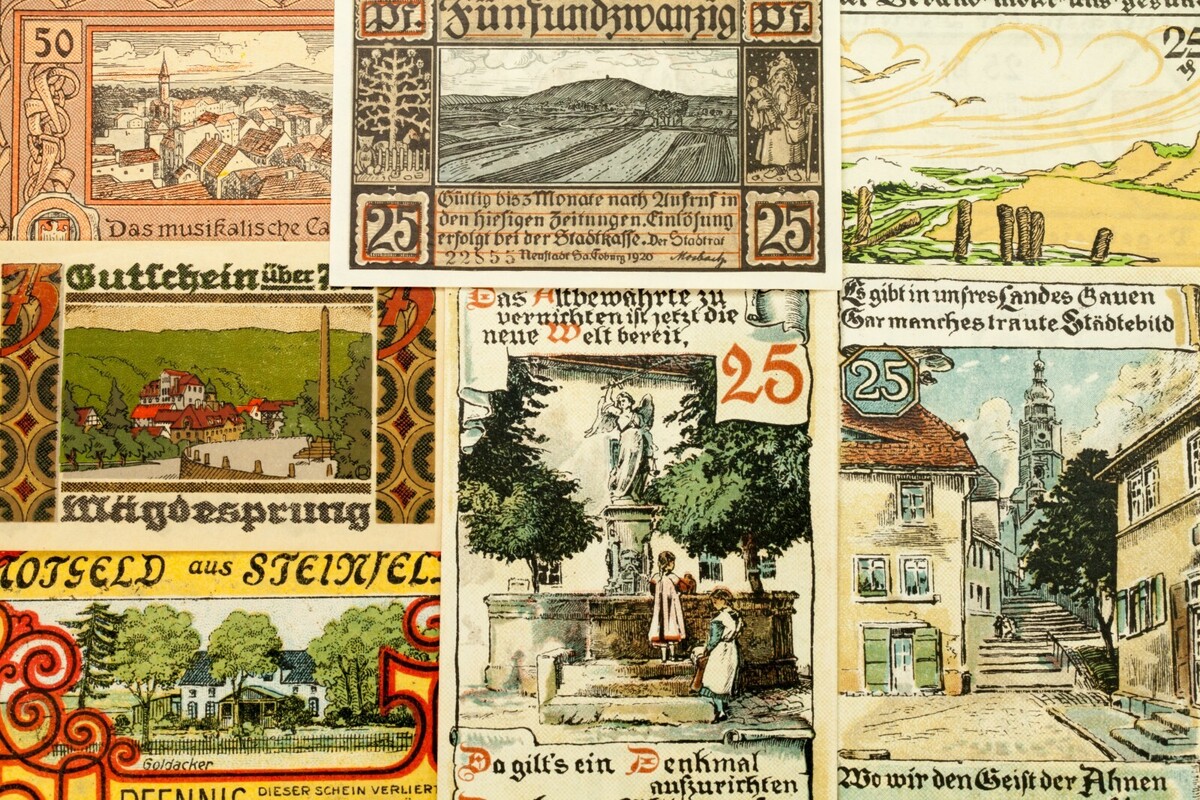 50
Das musikalische Ca
Pf. Fünfundzwanzig Pf.
25
25
Gültig bis 3 Monate nach Aufruf in
den hiesigen Zeitungen. Einlösung
erfolgt bei der Stadtkasse. Der Stadtrat
22855 Neustadt Sa. Coburg 1920
25
Gutschein über
75
Mägdesprung
NOTGELD aus STEINFEL
Goldacker
5
PFENNIG DIESER SCHEIN VERLIERT
Das Altbewährte zu
vernichten ist jetzt die
neue Welt bereit,
25
Da gilt's ein Denkmal
aufzurichten
Es gibt in unsres Landes Gauen
Gar manches traute Städtebild
25
Wo wir den Geist der Ahnen